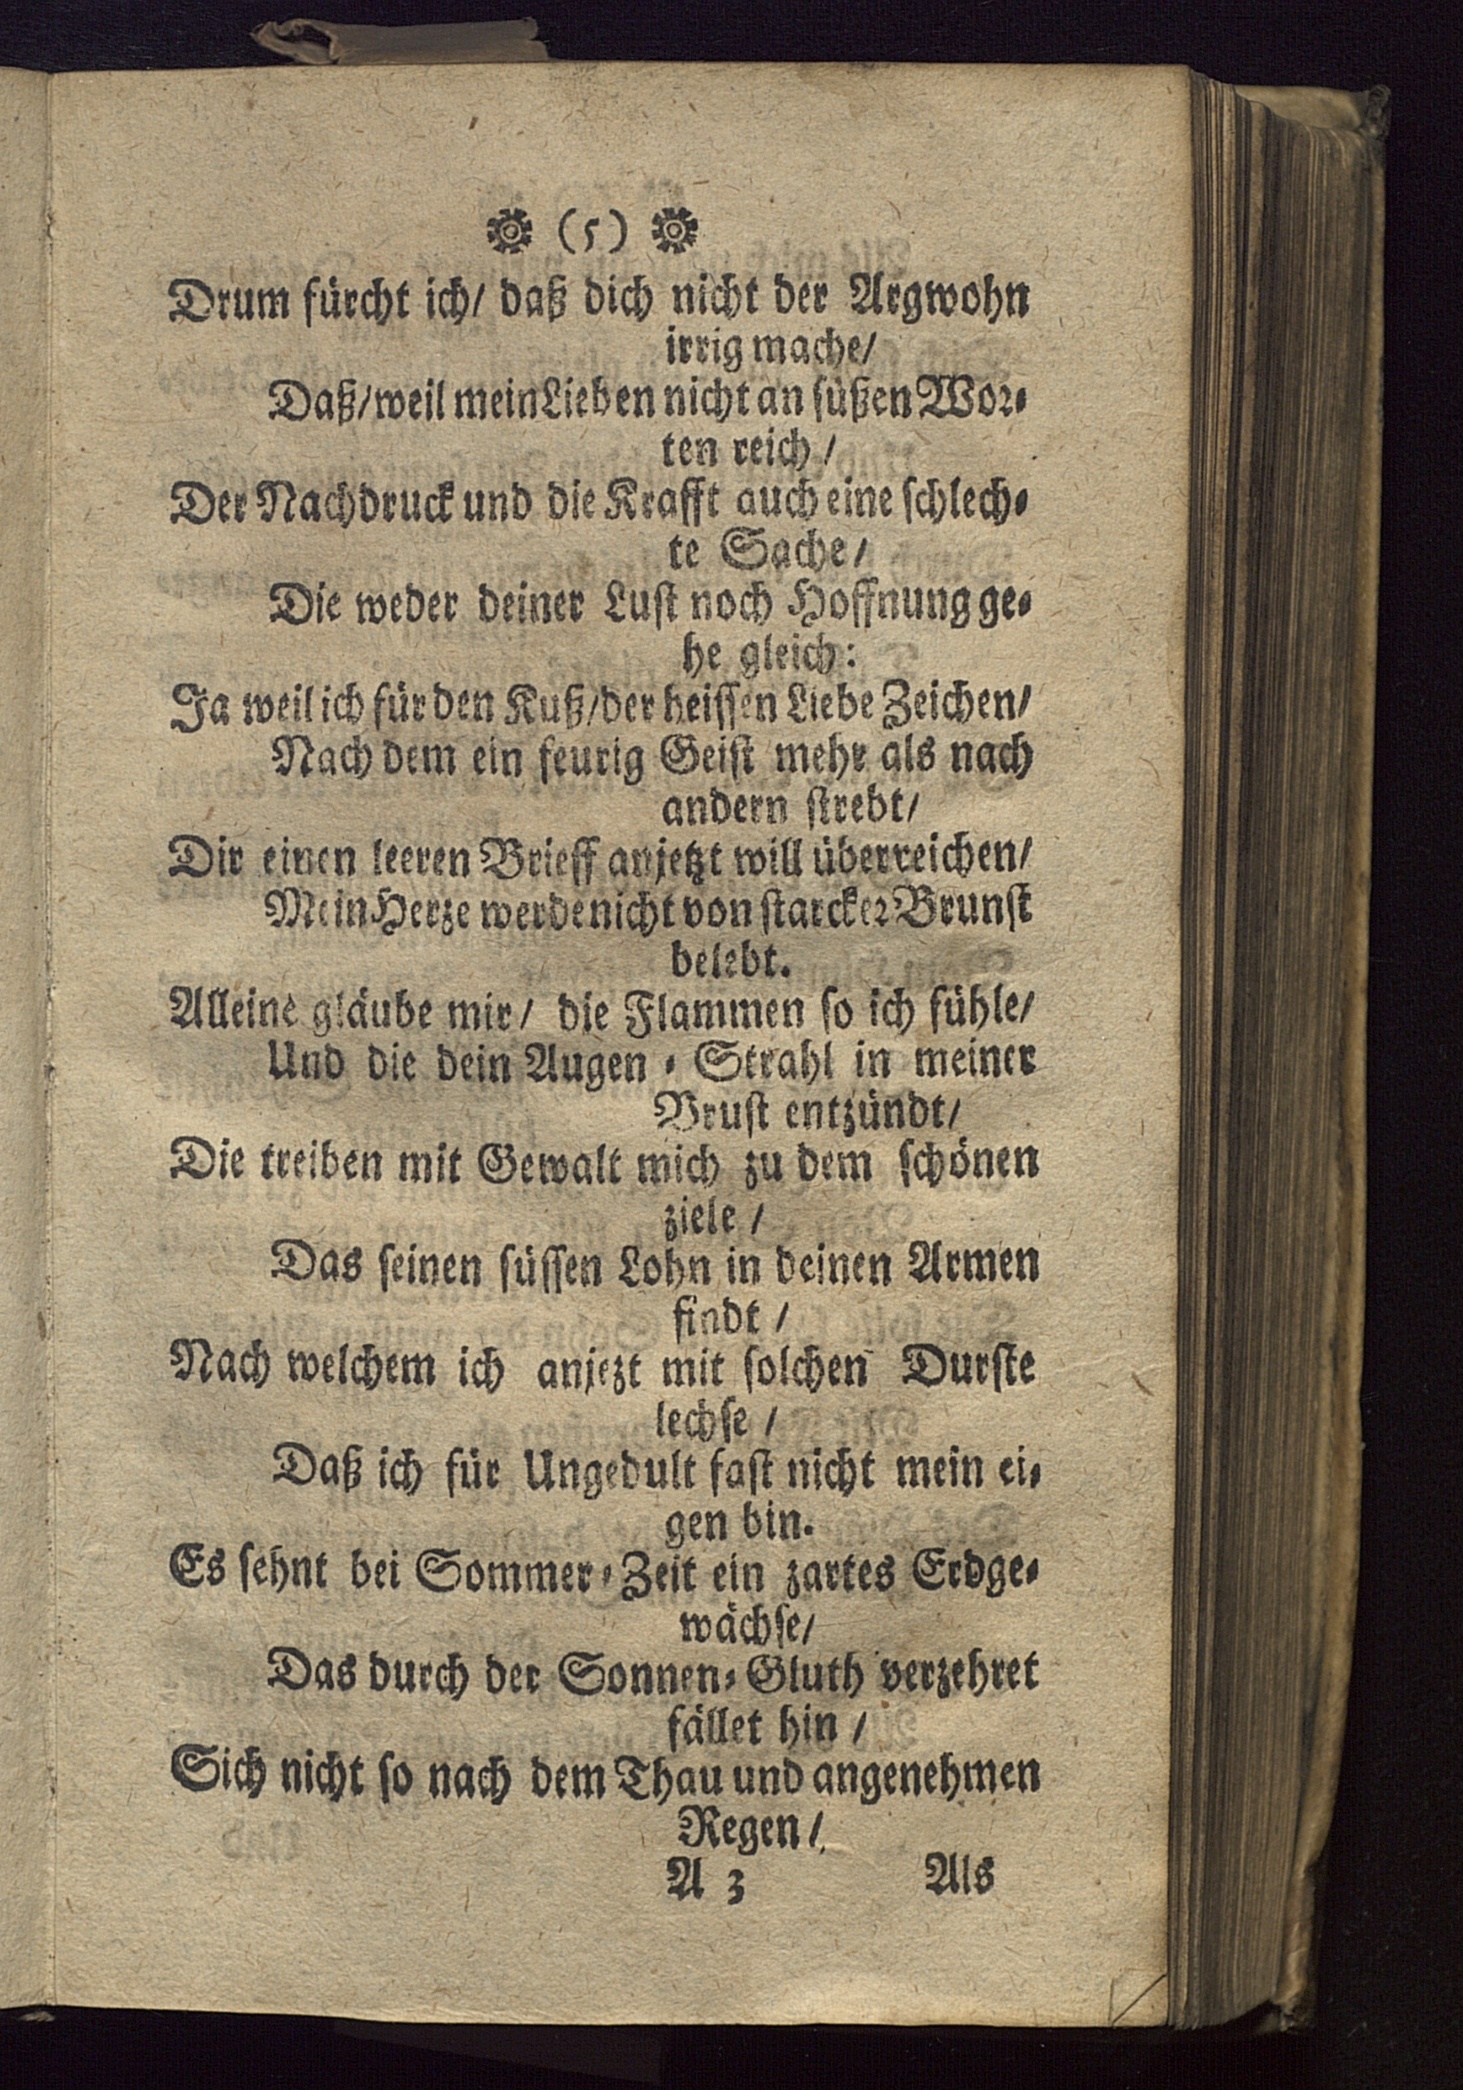 (5)
Drum fürcht ich/ daß dich nicht der Argwohn
irrig mache/
Daß/weil mein Lieben nicht an süßen Wor-
ten reich/
Der Nachdruck und die Krafft auch eine schlech-
te Sache/
Die weder deiner Lust noch Hoffnung ge-
he gleich:
Ja weil ich für den Kuß/der heissen Liebe Zeichen/
Nach dem ein feurig Geist mehr als nach
andern strebt/
Dir einen leeren Brieff anjetzt will überreichen/
Mein Herze werde nicht von starcker Brunst
belebt.
Alleine gläube mir/ die Flammen so ich fühle/
Und die dein Augen-Strahl in meiner
Brust entzündt/
Die treiben mit Gewalt mich zu dem schönen
ziele/
Das seinen süssen Lohn in deinen Armen
findt/
Nach welchem ich anjezt mit solchen Durste
lechse/
Daß ich für Ungedult fast nicht mein ei-
gen bin.
Es sehnt bei Sommer-Zeit ein zartes Erdge-
wächse/
Das durch der Sonnen-Gluth verzehret
fället hin/
Sich nicht so nach dem Thau und angenehmen
Regen/
A 3 Als